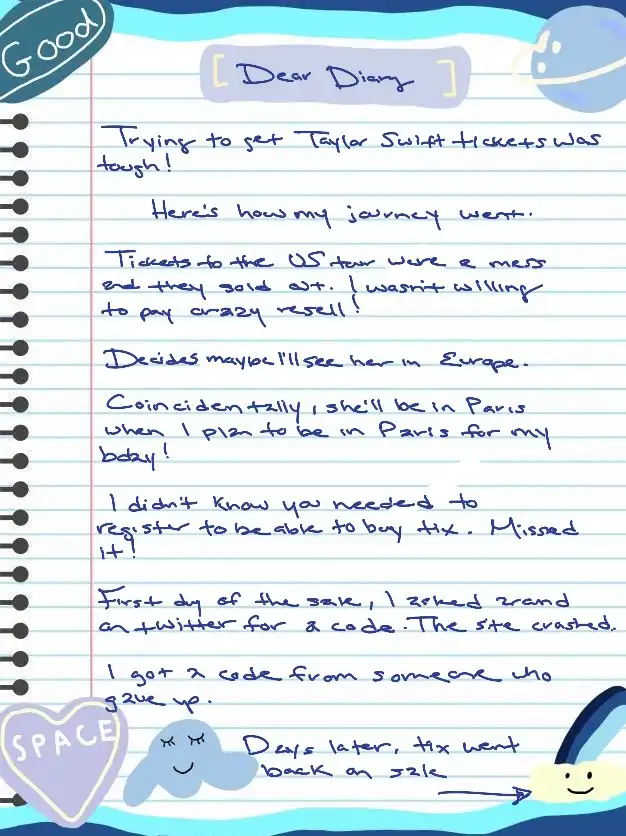 Good
[ Dear Diary ]
Trying to get Taylor Swift tickets was
tough!
Here's how my journey went.
Tickets to the US tour were a mess
and they sold out. I wasn't willing
to pay crazy resell!
Decides maybe I'll see her in Europe.
Coincidentally, she'll be in Paris
when I plan to be in Paris for my
bday!
I didn't know you needed to
register to be able to buy tix. Missed
it!
First day of the sale, I asked around
on twitter for a code. The site crashed.
I got a code from someone who
gave up.
SPACE
Days later, tix went
back on sale